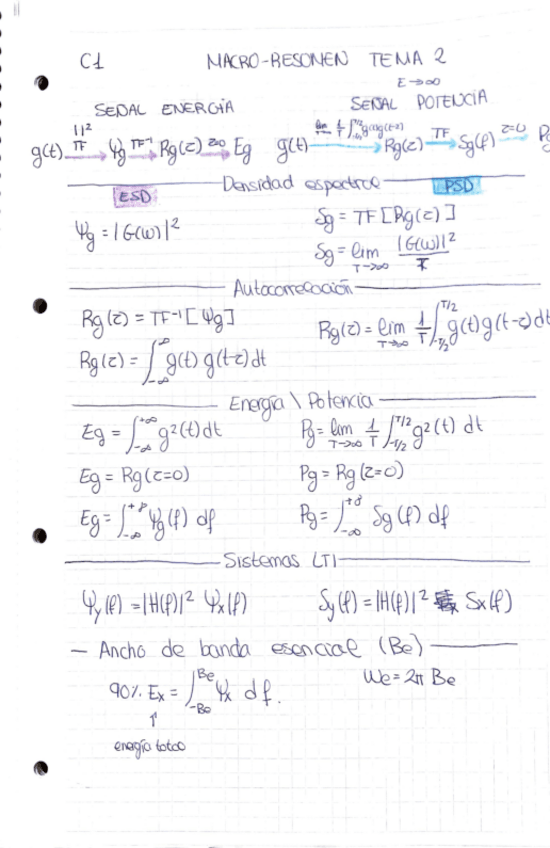 C1 MACRO-RESUMEN TEMA 2
SEÑAL ENERGÍA
SEÑAL POTENCIA E→∞
g(t) —| |² TF→ Ψg —TF⁻¹→ Rg(τ) —τ=0→ Eg
g(t) —lim 1/T ∫_{-T/2}^{T/2} g(t)g(t-τ)→ Rg(τ) —TF→ Sg(f) —τ=0→ P
Densidad espectral
ESD
PSD
Ψg = |G(ω)|²
Sg = TF[Rg(τ)]
Sg = lim_{T→∞} |G(ω)|²/T
Autocorrelación
Rg(τ) = TF⁻¹[Ψg]
Rg(τ) = ∫_{-∞}^{∞} g(t) g(t-τ) dt
Rg(τ) = lim_{T→∞} 1/T ∫_{-T/2}^{T/2} g(t) g(t-τ) dt
Energía \ Potencia
Eg = ∫_{-∞}^{+∞} g²(t) dt
Pg = lim_{T→∞} 1/T ∫_{-T/2}^{T/2} g²(t) dt
Eg = Rg(τ=0)
Pg = Rg(τ=0)
Eg = ∫_{-∞}^{+∞} Ψg(f) df
Pg = ∫_{-∞}^{+∞} Sg(f) df
Sistemas LTI
Ψy(f) = |H(f)|² Ψx(f)
Sy(f) = |H(f)|² Sx(f)
— Ancho de banda esencial (Be)
90% Ex = ∫_{-Be}^{Be} Ψx df.
We = 2π Be
↑
energía total